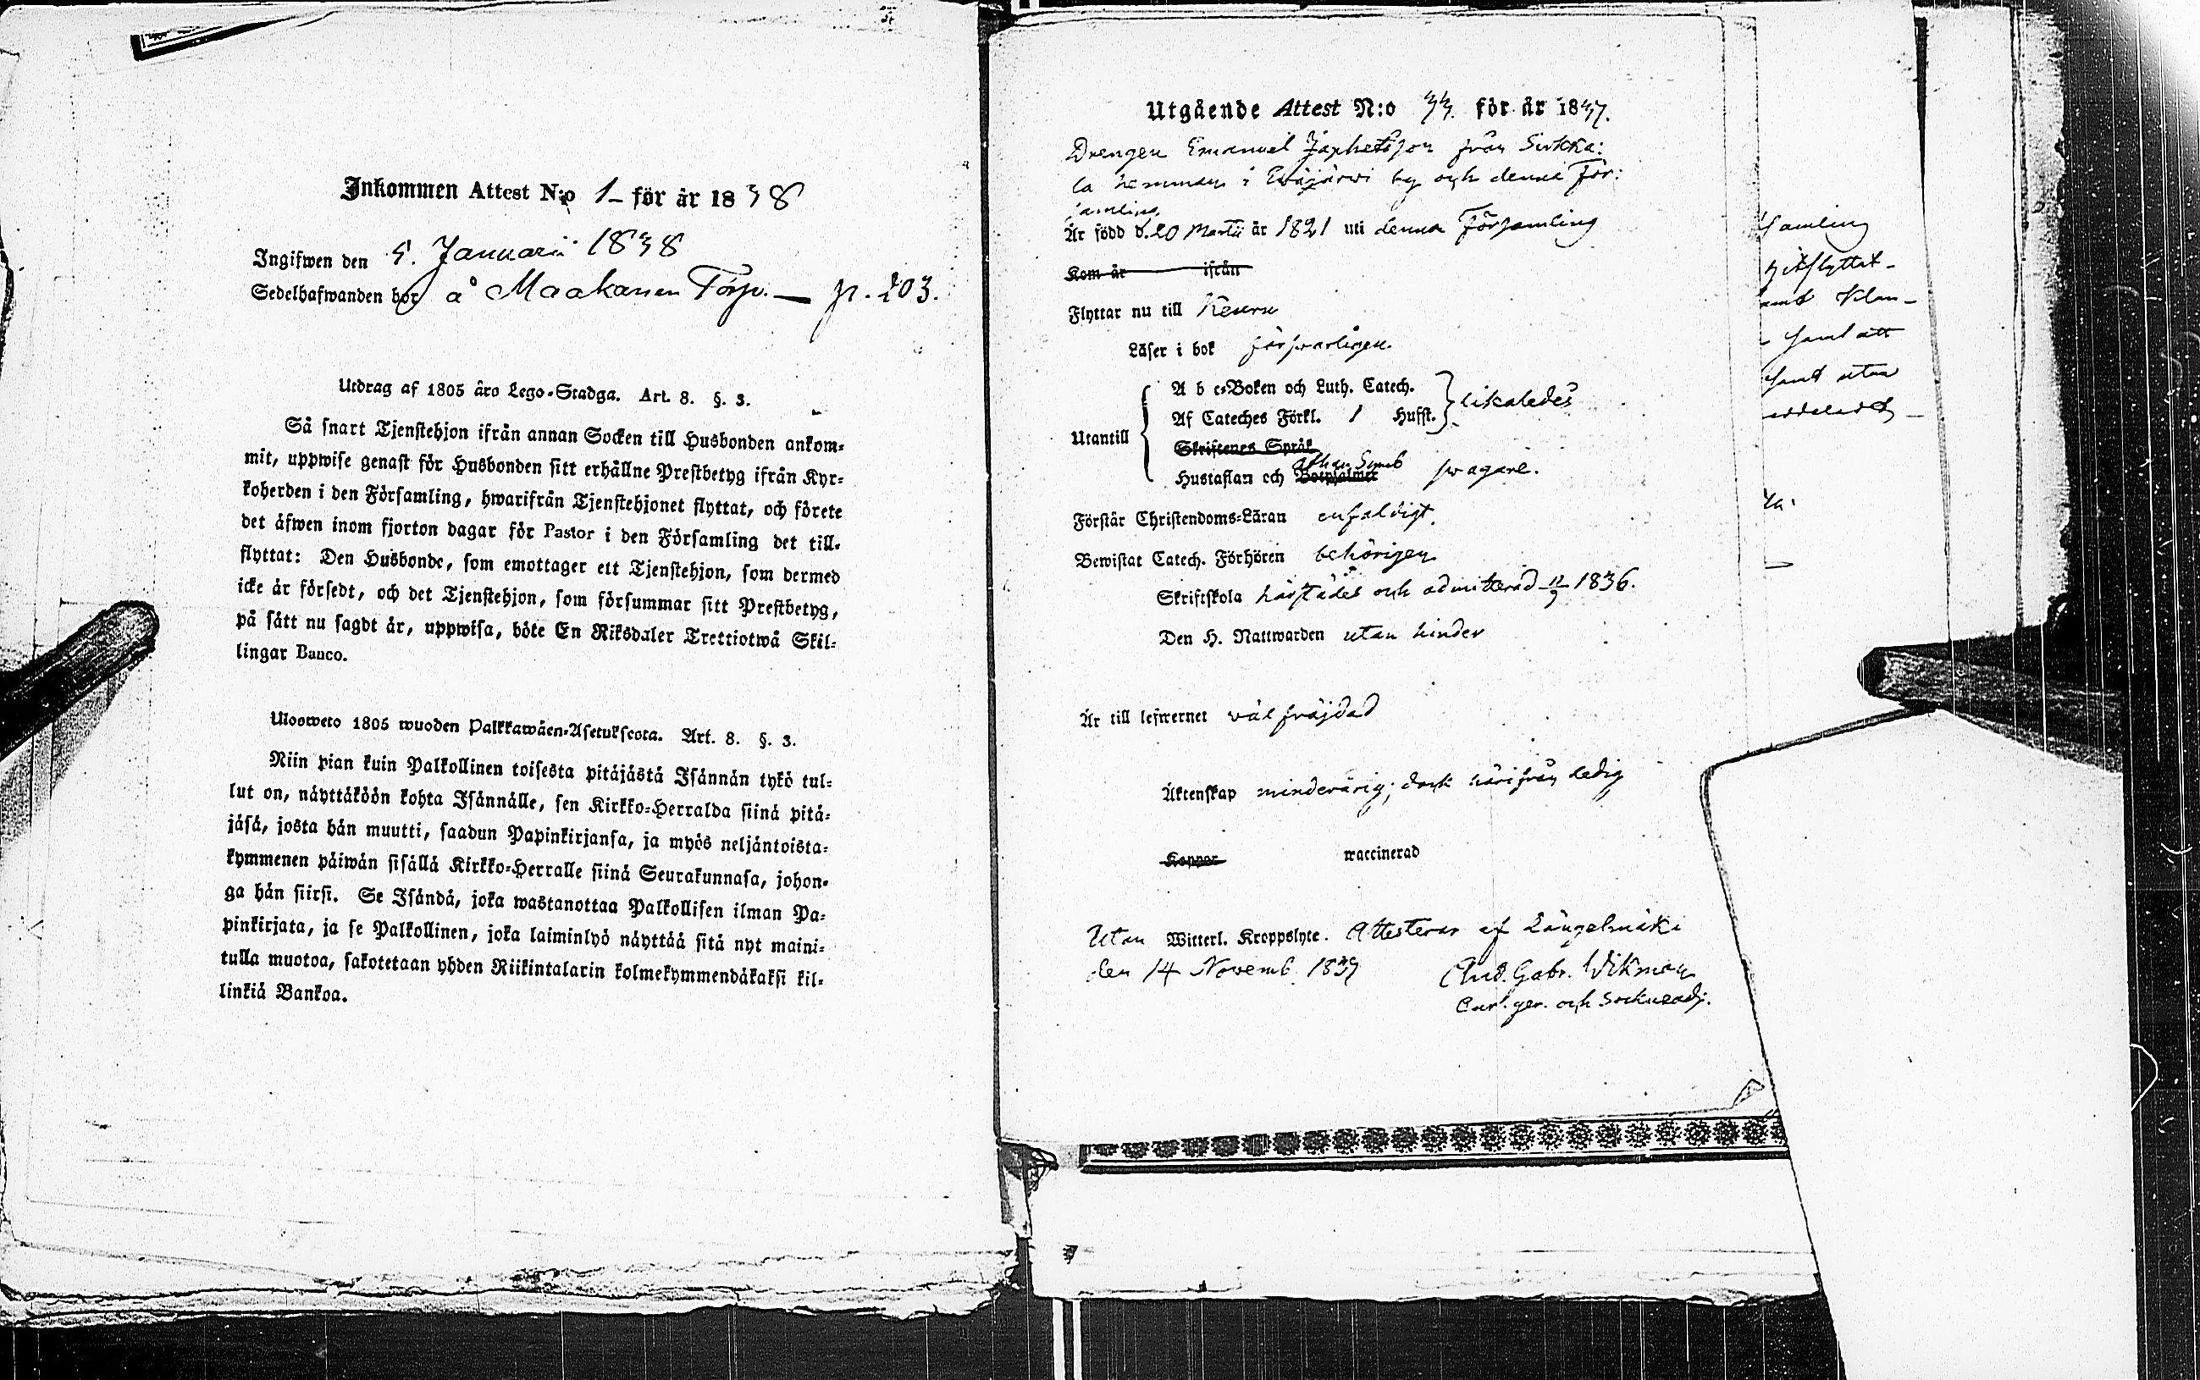 Inkommen Attest N:o 1 för år 1838
Ingifwen den 5. Januarii 1838
Sedelhafwanden bor å Maakanen Torp. — p. 203.
Utdrag af 1805 åro Lego-Stadga. Art. 8. §. 3.
Så snart Tjenstehjon ifrån annan Socken till Husbonden ankom-
mit, uppwise genast för Husbonden sitt erhållne Prestbetyg ifrån Kyr-
koherden i den Församling, hwarifrån Tjenstehjonet flyttat, och förete
det äfwen inom fjorton dagar för Pastor i den Församling det till-
flyttat: Den Husbonde, som emottager ett Tjenstehjon, som dermed
icke är försedt, och det Tjenstehjon, som försummar sitt Prestbetyg,
på sätt nu sagdt är, uppwisa, böte En Riksdaler Trettiotwå Skil-
lingar Banco.
Ulosweto 1805 wuoden Palkkawäen-Asetuksesta. Art. 8. §. 3.
Niin pian kuin Palkollinen toisesta pitäjästä Isännän tykö tul-
lut on, näyttäköön kohta Isännälle, sen Kirkko-Herralda siinä pitä-
jäsä, josta hän muutti, saadun Papinkirjansa, ja myös neljäntoista-
kymmenen päiwän sisällä Kirkko-Herralle siinä Seurakunnasa, johon-
ga hän siirsi. Se Isändä, joka wastanottaa Palkollisen ilman Pa-
pinkirjata, ja se Palkollinen, joka laiminlyö näyttää sitä nyt maini-
tulla muotoa, sakotetaan yhden Riikintalarin kolmekymmendäkaksi kil-
linkiä Bankoa.
Utgående Attest N:o 33. för år 1837.
Drengen Emanuel Japhetsson från Sirkka:
la hemman i Eräjärwi by och denna För:
samling
Är född d. 20 Martii år 1821 uti denna Församling
Kom år ifrån
Flyttar nu till Keuru
Läser i bok försvarligen.
Utantill
A b c-Boken och Luth. Catech.
Af Cateches Förkl. 1 Hufst. likaledes
Skriftenes Språk
Hustaflan och Athan. Symb Botpsalmer swagare.
Förstår Christendoms-Läran enfaldigt.
Bewistat Catech. Förhören behörigen
Skriftskola härstädes och admitterad 1836.
Den H. Nattwarden utan hinder
Är till lefwernet väl fräjdad
Äktenskap minderårig; dock härifrån ledig
Koppor waccinerad
Utan Witterl. Kroppslyte. Attesterar af Längelmäki
den 14 Novemb. 1837 And. Gabr. Wikman
samling